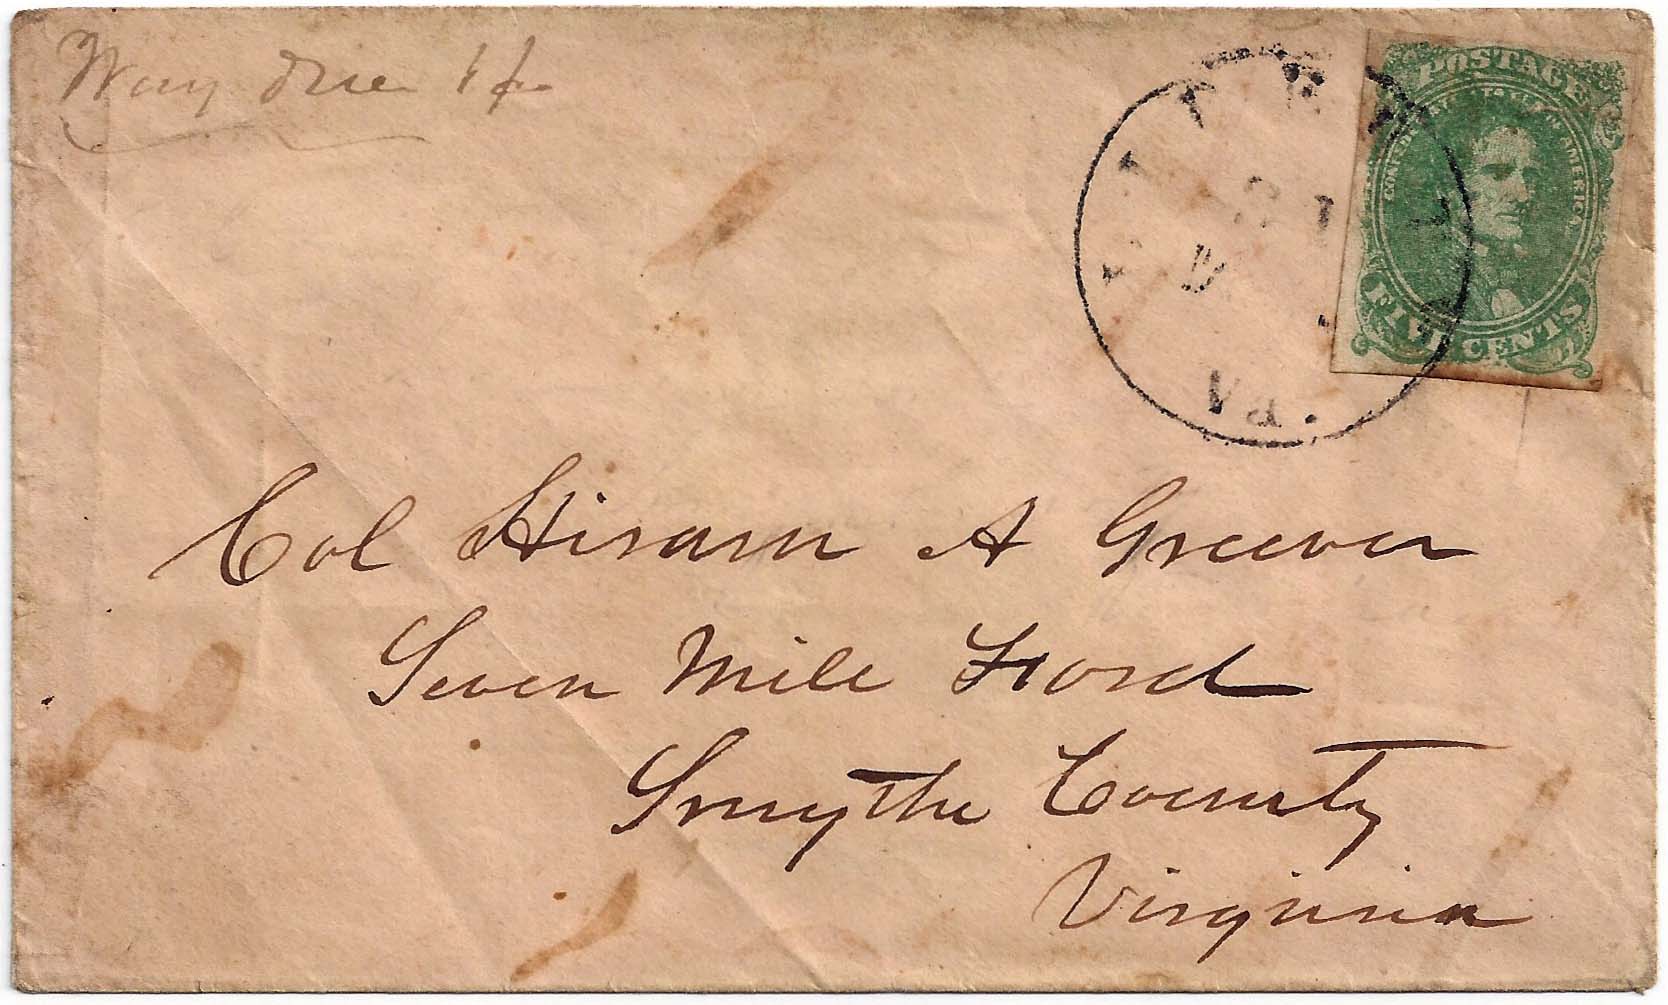 Way due 1¢
POSTAGE
CONFEDERATE STATES OF AMERICA
FIVE CENTS
Va.
Col Hiram A Greever
Seven Mile Ford
Smythe County
Virginia